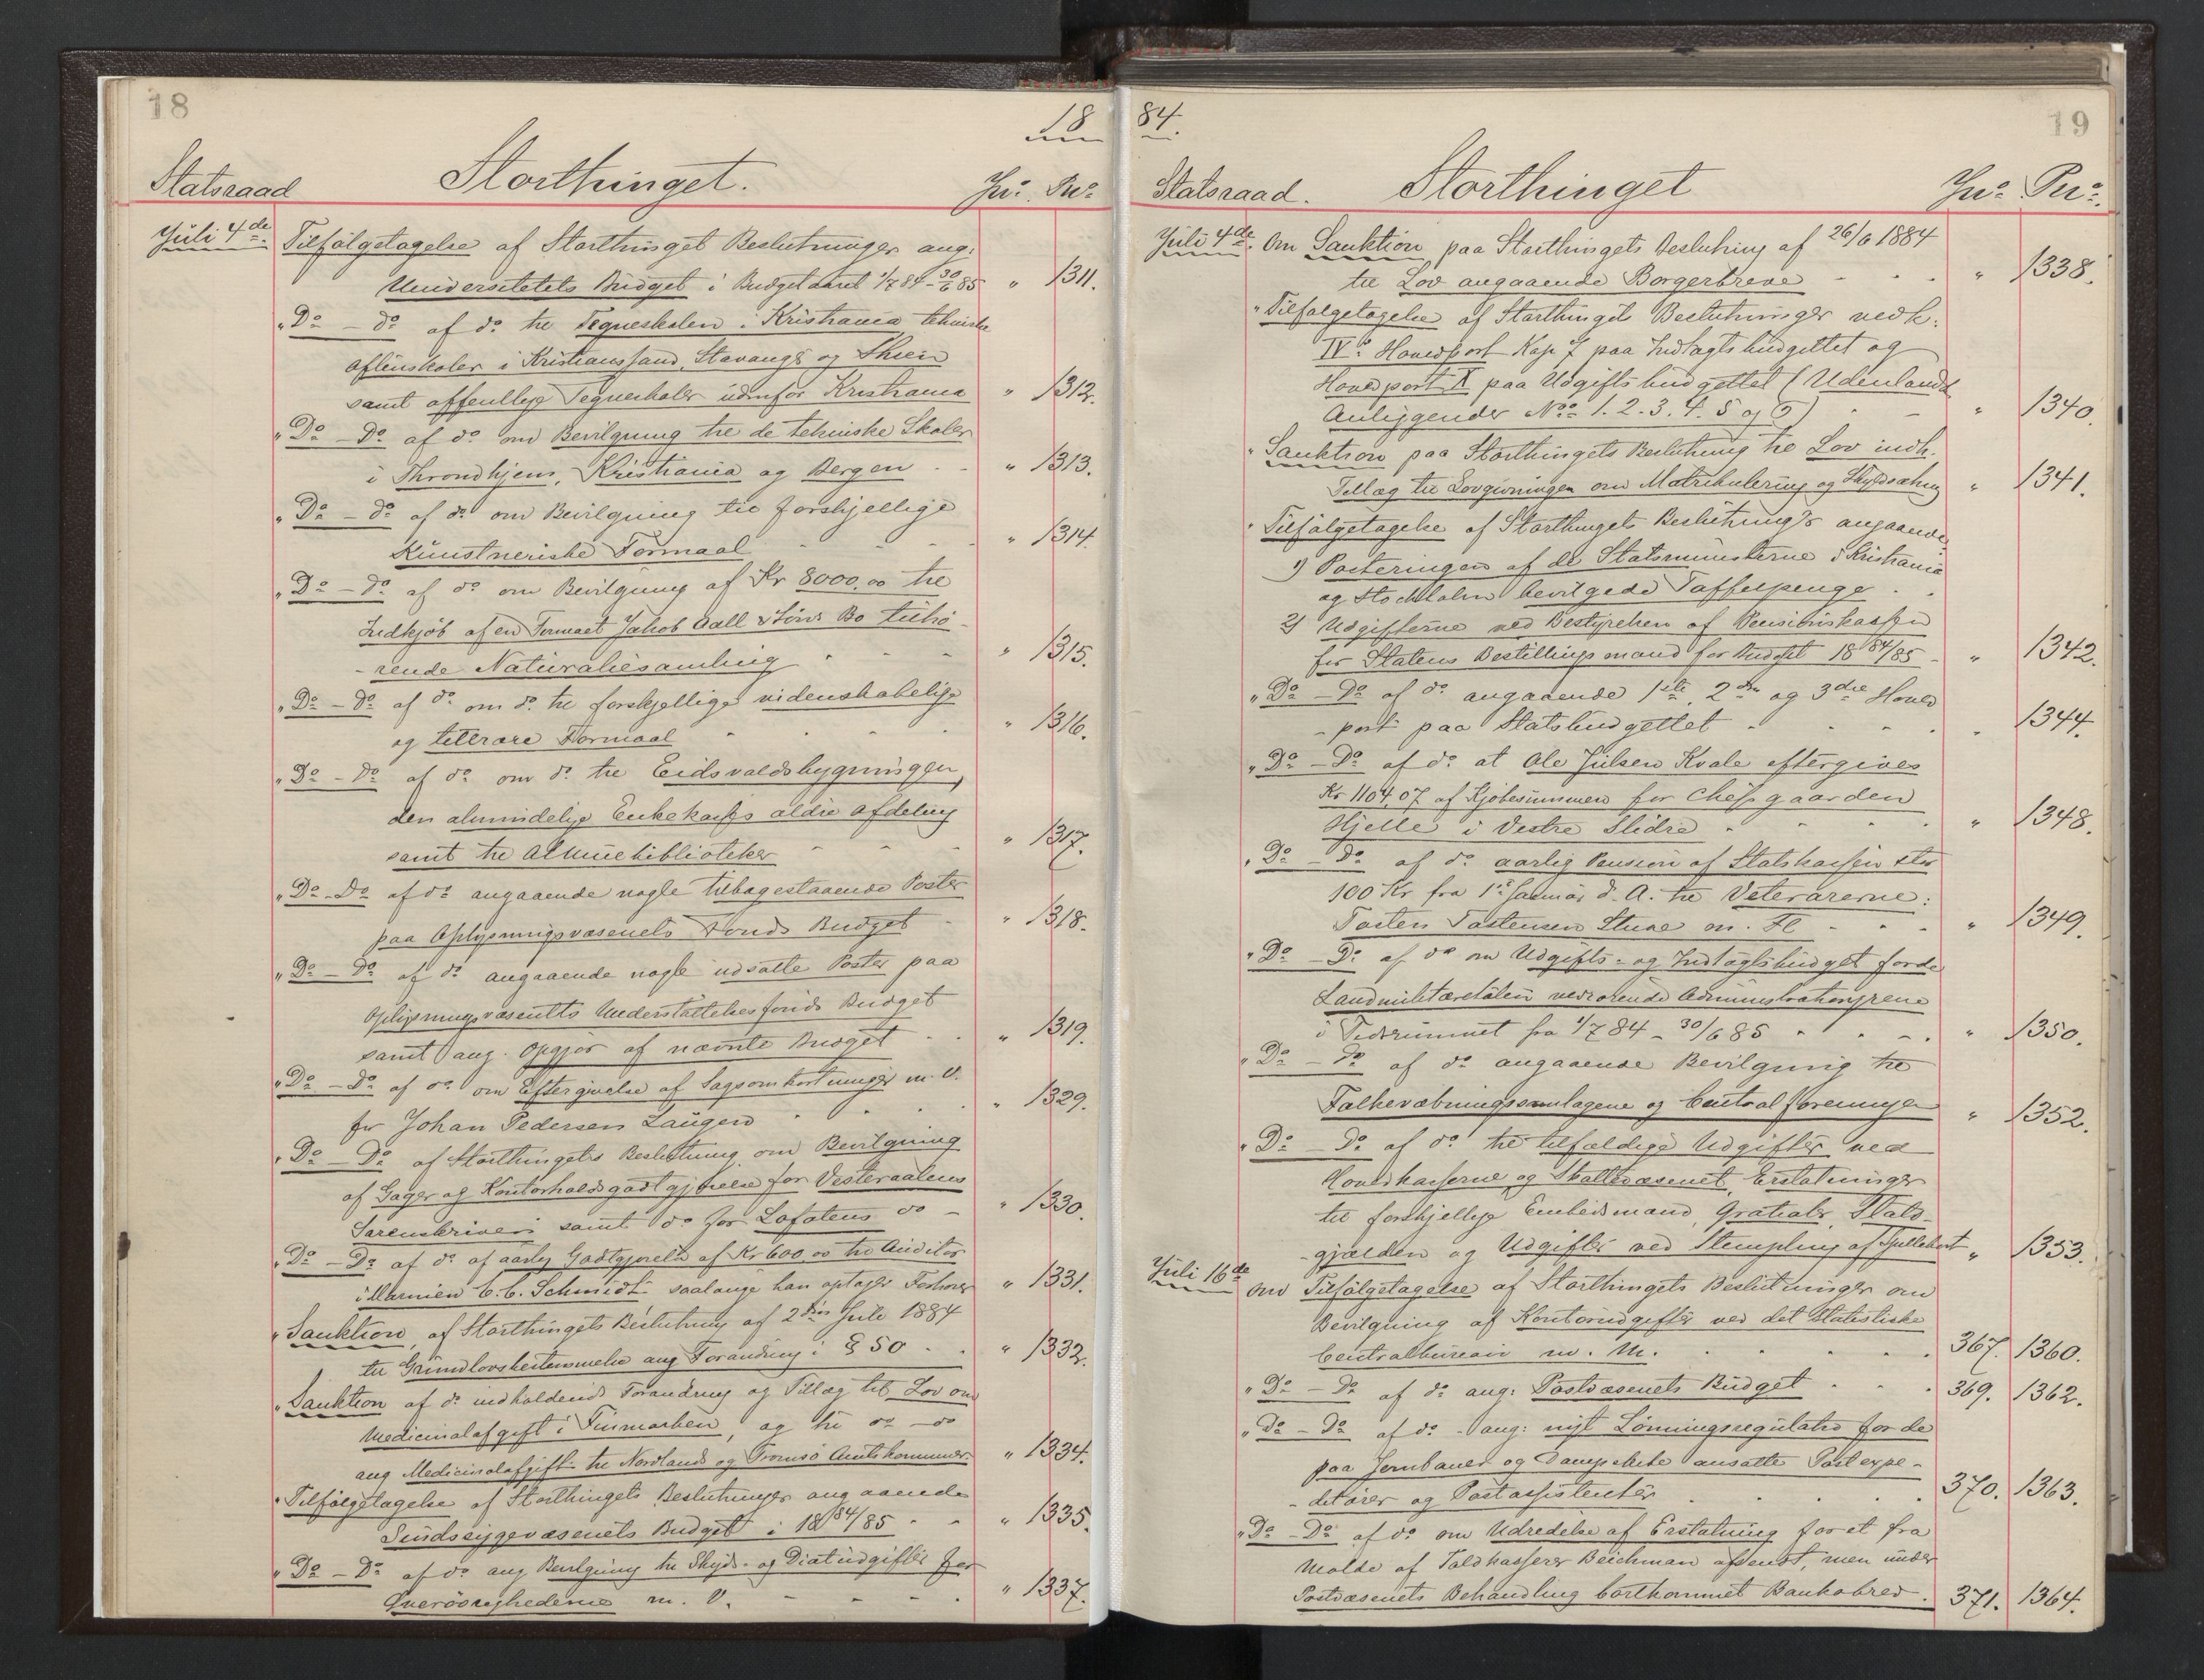 18
18
Statsraad
Storthinget.
Jno. Pno.
Juli 4de. Tilfølgetagelse af Storthinget Beslutninger ang:
Universitetets Budget i Budgetaaret 1/7 84 - 30/6 85 " 1311.
" Do - do af do til Tegneskolen i Kristiania, tekniske
Aftenskoler i Kristianssand, Stavanger og Skien
samt offentlige Tegneskoler udenfor Kristiania " 1312.
" Do - Do af do om Bevilgning til de tekniske Skoler
i Throndhjem, Kristiania og Bergen " 1313.
" Do - do af do om Bevilgning til forskjellige
Kunstneriske Formaal " 1314.
" Do - do af do om Bevilgning af Kr 8000,00 til
Indkjøb af en Firmaet Jakob Aall & Søns Bo tilhø-
-rende Naturaliesamling " 1315.
" Do - do af do om do til forskjellige videnskabelige
og litterære Formaal " 1316.
" Do - do af do om do til Eidsvoldsbygningen,
den almindelige Enkekasses ældre Afdeling
samt til Almuebibliotheker " 1317.
" Do - Do af do angaaende nogle tilbagestaaende Poster
paa Oplysningsvæsenets Fonds Budget " 1318.
" Do - Do af do angaaende nogle udsatte Poster paa
Oplysningsvæsenets Understøttelsesfonds Budget
samt ang. Opgjør af nævnte Budget " 1319.
" Do - Do af do om Eftergivelse af Sagsomkostninger m. V.
for Johan Pedersen Laugen " 1329.
" Do - Do af Storthingets Beslutning om Bevilgning
af Gager og Kontorholdsgodtgjørelse for Vesteraalens
Sorenskriveri samt do for Lofotens do - " 1330.
" Do - Do af do af aarlig Godtgjørelse af Kr 600,00 til Auditør
i Marinen C. C. Schmidt saalænge han optager Forhører " 1331.
" Sanktion, af Storthingets Beslutning af 2den Juli 1884
til Grundlovsbestemmelse ang Forandring i § 50 " 1332.
" Sanktion af do indholdende Forandring og Tillæg til Lov om
Medicinalafgift i Finmarken, og til do - do
ang Medicinalafgift til Nordlands og Tromsø Amtskommuner. " 1334.
" Tilfølgetagelse af Storthingets Beslutninger angaaende
Sindssygevæsenets Budget i 1884/85 " 1335.
" Do - Do af do ang Bevilgning til Skyds- og Diætudgifter for
Overøvrighederne m. V. " 1337.
84.
19
Statsraad.
Storthinget
Jno. Pno.
Juli 4de. Om Sanktion paa Storthingets Beslutning af 26/6 1884
til Lov angaaende Borgerbreve " 1338.
" Tilfølgetagelse af Storthingets Beslutninger vedk:
IVde Hovedpost Kap 7 paa Indtægtsbudgettet og
Hovedpost X paa Udgiftsbudgettet (Udenlandske
Anliggender No 1. 2. 3. 4. 5 og 6) " 1340.
" Sanktion paa Storthingets Beslutning til Lov indh.
Tillæg til Lovgivningen om Matrikulering og Skyldsætning " 1341.
" Tilfølgetagelse af Storthingets Beslutninger angaaende
1) Posteringen af de Statsministerne i Kristiania
og Stockholm bevilgede Taffelpenge
2) Udgifterne ved Bestyrelsen af Pensionskassen
for Statens Bestillingsmænd for Budget 1884/85 - " 1342.
" Do - Do af do angaaende 1ste, 2den og 3die Hoved
-post paa Statsbudgettet " 1344.
" Do - Do af do at Ole Julsen Kvale eftergives
Kr 1104,07 af Kjøbesummen for Chefsgaarden
Hjelle i Vestre Slidre " 1348.
" Do - Do af do aarlig Pension af Statskassen stor
100 Kr fra 1. Januar d. A. til Veteranerne:
Tosten Tostensen Stuve m. Fl " 1349.
" Do - Do af do om Udgifts- og Indtægtsbudget for de
Landmilitæretaten vedrørende Administrationsgrene
i Tidsrummet fra 1/7 84 - 30/6 85 " 1350.
" Do - do af do angaaende Bevilgning til
Folkevæbningssamlagene og Centralforeningen " 1352.
" Do - Do af do til tilfældige Udgifter ved
Hovedkasserne og Skattevæsenet, Erstatninger
til forskjellige Embedsmænd, Gratialer, Stats-
-gjælden og Udgifter ved Stempling af Spillekort " 1353.
Juli 16de om Tilfølgetagelse af Storthingets Beslutninger om
Bevilgning af Kontorudgifter ved det statistiske
Centralbureau m. M. 367. 1360.
" Do - Do af do ang: Postvæsenets Budget 369. 1362.
" Do - Do af do - ang: nyt Lønningsregulativ for de
paa Jernbaner og Dampskibe ansatte Postexpe-
-ditører og Postassistenter 370. 1363.
" Do - Do af do om Udredelse af Erstatning for et fra
Molde af Toldkasserer Beichman afsendt, men under
Postvæsenets Behandling bortkommet Bankobrev. 371. 1364.